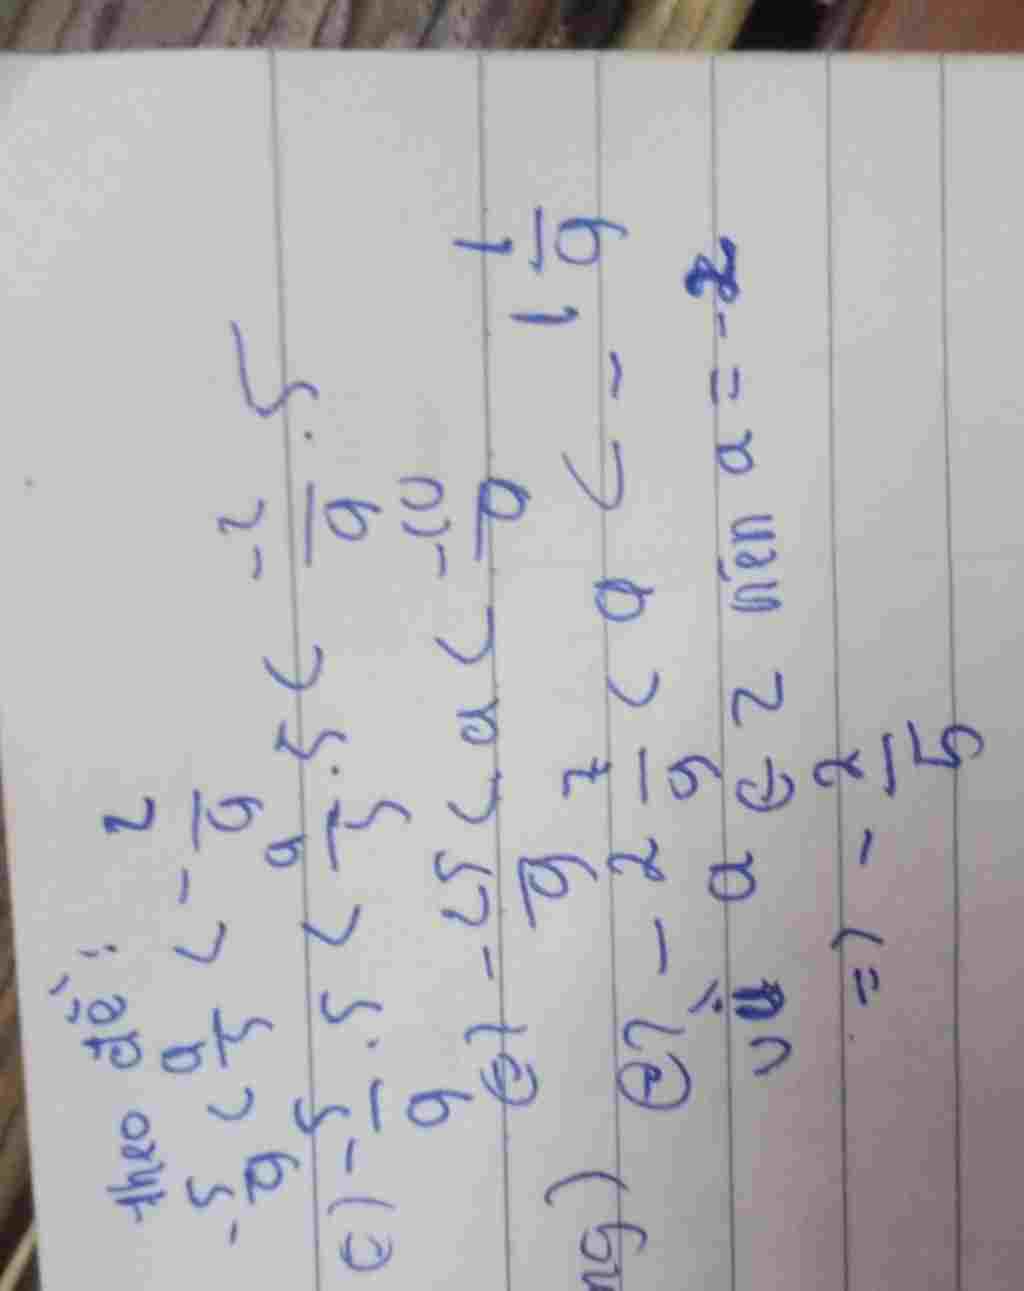 theo đề:
-5/9 < a/5 < -2/9
(=) -5/9 . 5 < a/5 . 5 < -2/9 . 5
(=) -25/9 < a < -10/9
(=) -2 7/9 < a < -1 1/9
Vì a ∈ Z nên a = -2
=> -2/5